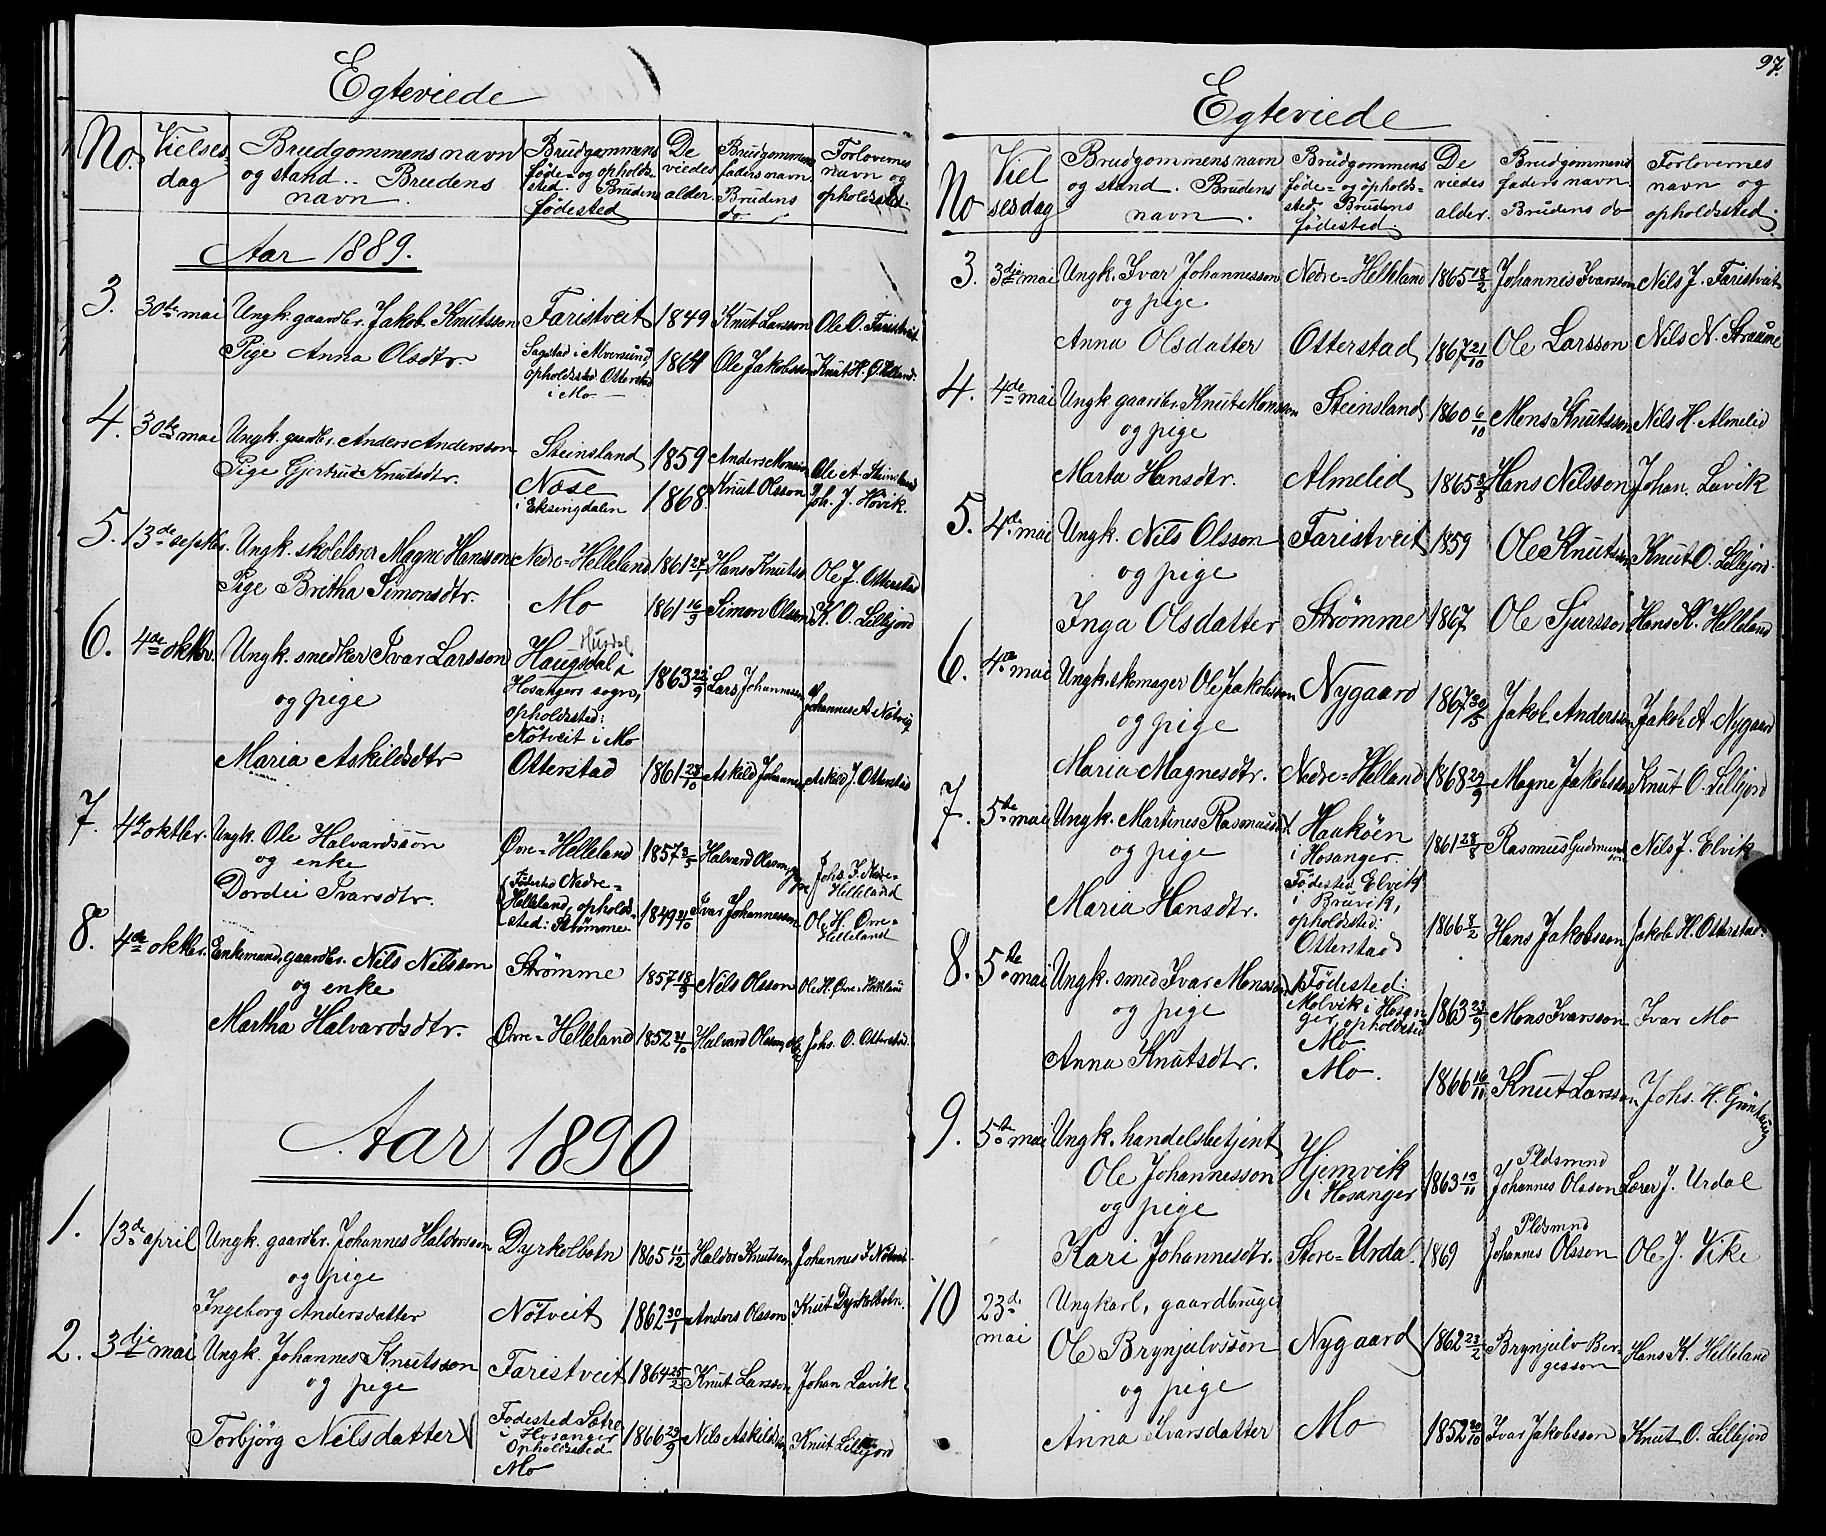 Egteviede
No. Vielses dag Brudgommens navn og stand. Brudens navn. Brudgommens føde- og opholds-sted. Brudens fødested De viedes alder. Brudgommens faders navn. Brudens do Forlovernes navn og opholdssted.
Aar 1889.
3. 30te mai Ungk. gaardbr. Jakob Knutsson Faristveit 1849 Knut Larsson Ole O. Faristveit
Pige Anna Olsdtr. Sagstad i opholdssted Otterstad i Mo 1861 Ole Jakobsson Knut H.
4. 30te mai Ungk. gardbr. Anders Andersson Steinsland 1859 Anders Monsson Ole A. Steinsland
Pige Gjertrud Knutsdtr. Nose i Eksingdalen 1868 Knut Olsson Joh. J. Høvik.
5. 13de septbr. Ungk. skolelærer Magne Hansson Nedre-Helleland 1861 27/1 Hans Knutss. Ole J. Otterstad
Pige Britha Simonsdtr. Mo 1861 16/9 Simon Olsson K. O. Lillejord
6. 4de oktbr. Ungk. snedker Ivar Larsson Haugsdal Husdal i Hosangers sogn, opholdssted: Nötveit i Mo 1863 22/9 Lars Johannessen Johannes A Nötveit
og pige
Maria Askildsdtr Otterstad 1861 28/10 Askild Johannes Askild J. Otterstad
7. 4de oktbr. Ungk. Ole Halvardsson Øvre-Helleland 1857 3/5 Halvard Olsson Johs. I. Nedre-Helleland
og enke
Dordei Ivarsdtr. Födested Nedre-Helleland, opholdssted: Strömme 1849 21/10 Ivar Johannessen Ole H. Øvre-Helleland
8. 4de oktbr. Enkemand, gaardbr. Nils Nilsson Strømme 1857 18/9 Nils Olsson Ole H. Øvre-Helleland
og enke
Martha Halvardsdtr. Øvre-Helleland 1852 21/10 Halvard Olsson Johs. O. Otterstad.
Aar 1890
1. 13de april Ungk. gaardbr. Johannes Haldorsson Dyrkolbotn 1865 11/12 Haldor Knutsson Johannes I. Nötveit.
og pige
Ingeborg Andersdatter Nötveit 1862 30/1 Anders Olsson Knut Dyrkolbotn.
2. 3dje mai Ungk. Johannes Knutsson Faristveit 1864 25/2 Knut Larsson Johan Lavik
og pige
Torbjörg Nilsdatter Fødested Sætre i Hosanger Opholdssted Mo 1866 29/9 Nils Askilds Knut Lillejord
97.
Egteviede
No Vielsesdag Brudgommens navn og stand. Brudens navn. Brudgommens føde- og opholds-sted. Brudens fødested. De viedes alder. Brudgommens faders navn. Brudens do Forlovernes navn og opholdssted.
3. 3dje mai Ungk. Ivar Johannesson Nedre-Helleland 1865 18/2 Johannes Ivarsson Nils J. Faristveit
og pige
Anna Olsdatter Otterstad 1867 21/10 Ole Larsson Nils N. Straume
4. 4de mai Ungk gaardbr. Knut Monsson Steinsland 1860 6/10 Mons Knutsson Nils H. Almelid
og pige
Marta Hansdtr. Almelid 1865 8/8 Hans Nilsson Johan. Lavik
5. 4de mai Ungk. Nils Olsson Faristveit 1859 Ole Knutsson Knut O. Lillejord.
og pige
Inga Olsdatter Strømme 1867 Ole Sjursson Hans K. Helleland
6. 4de mai Ungk. skomager Ole Jakobsson Nygaard 1867 30/5 Jakob Andersson Jakob A Nygaard
og pige
Maria Magnesdtr. Nedre-Helland 1868 29/9 Magne Jakobsson Knut O. Lillejord
7. 5te mai Ungk. Martines Rasmusson Haakøen i Hosanger 1861 28/8 Rasmus Gudmundsson Nils J. Elvik
og pige
Maria Hansdtr. Födested Elvik i Bruvik, opholdssted: Otterstad 1866 8/2 Hans Jakobsson Jakob H. Otterstad.
8. 5te mai Ungk. smed Ivar Monsson Födested: Molvik i Hosanger, opholdssted Mo. 1863 23/9 Mons Ivarsson Ivar Mo
og pige
Anna Knutsdtr. Mo. 1866 16/11 Knut Larsson Johs. H.
9. 5te mai Ungk. handelsbetjent
Ole Johannesson Hjemvik i Hosanger 1863 13/11 Pldsmnd Johannes Olsson Lærer J. Urdal
og pige
Kari Johannesdtr. Store-Urdal 1869 Pldsmnd Johannes Olsson Ole J. Vike
10 23de mai Ungkarl, gaardbruger
Ole Brynjulvsson Nygaard 1862 23/2 Brynjulv Bergesson Hans K. Helleland
og pige
Anna Ivarsdatter Mo 1852 20/10 Ivar Jakobsson Knut O. Lillejord